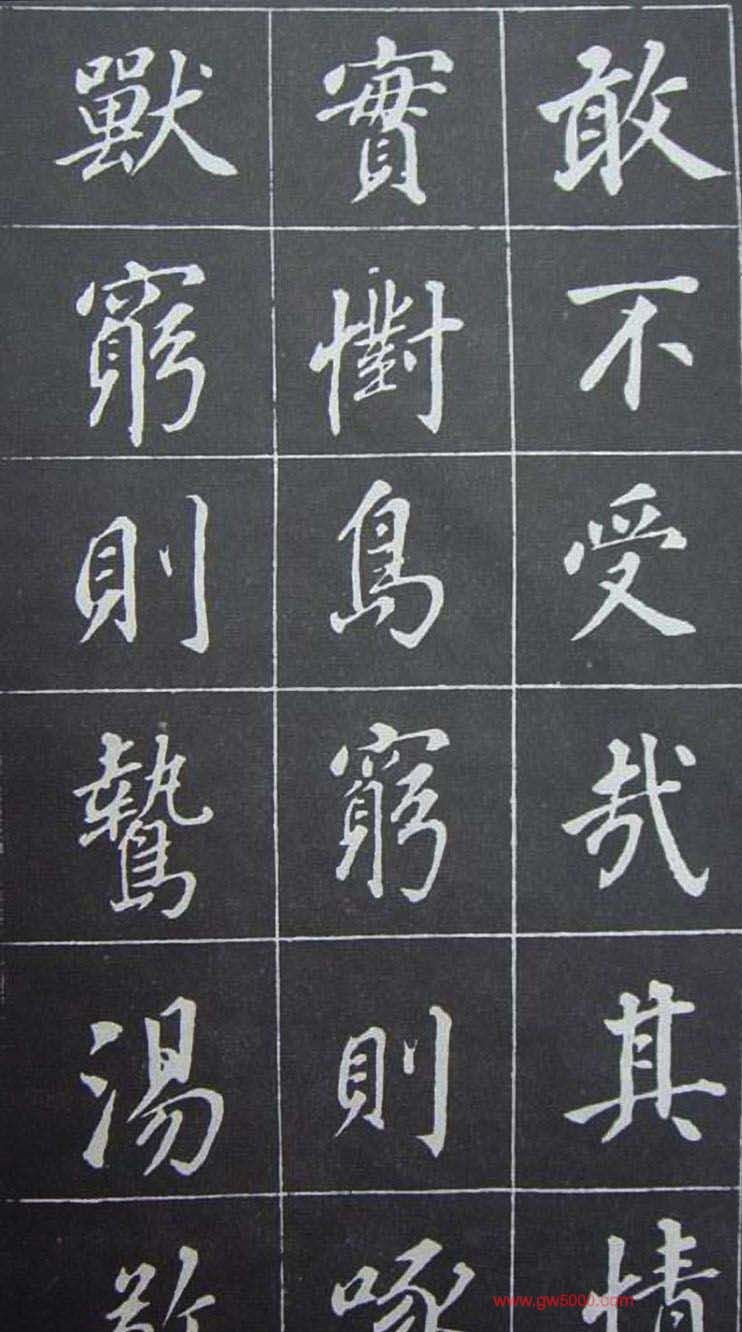 敢不受哉其情
實懟鳥窮則啄
獸窮則鷙湯
www.gw5000.com